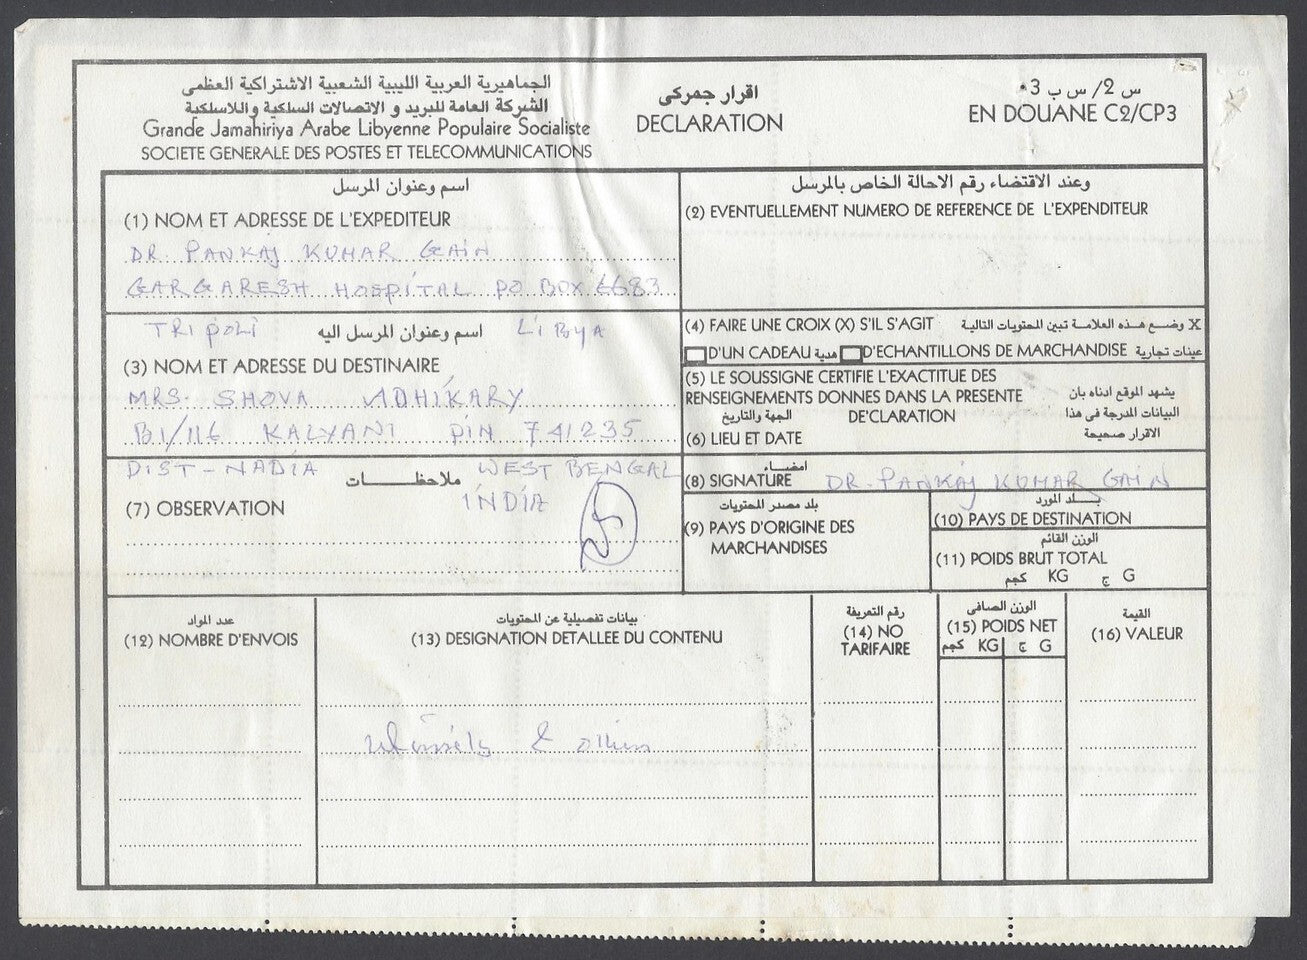 الجماهيرية العربية الليبية الشعبية الاشتراكية العظمى
الشركة العامة للبريد و الاتصالات السلكية واللاسلكية
Grande Jamahiriya Arabe Libyenne Populaire Socialiste
SOCIETE GENERALE DES POSTES ET TELECOMMUNICATIONS
اقرار جمركى
DECLARATION
س 2/ س ب 3•
EN DOUANE C2/CP3
اسم وعنوان المرسل
(1) NOM ET ADRESSE DE L'EXPEDITEUR
DR. PANKAJ KUMAR GAIN
GARGARESH HOSPITAL PO BOX 6683
TRIPOLI LIBYA
وعند الاقتضاء رقم الاحالة الخاص بالمرسل
(2) EVENTUELLEMENT NUMERO DE REFERENCE DE L'EXPENDITEUR
اسم وعنوان المرسل اليه
(3) NOM ET ADRESSE DU DESTINAIRE
MRS. SHOVA ADHIKARY
B1/116 KALYANI PIN 741235
DIST-NADIA WEST BENGAL
INDIA
(4) FAIRE UNE CROIX (X) S'IL S'AGIT
X وضع هذه العلامة تبين المحتويات التالية
D'UN CADEAU هدية D'ECHANTILLONS DE MARCHANDISE عينات تجارية
(5) LE SOUSSIGNE CERTIFIE L'EXACTITUE DES
RENSEIGNEMENTS DONNES DANS LA PRESENTE
DE'CLARATION
يشهد الموقع ادناه بان
البيانات المدرجة فى هذا
الاقرار صحيحة
الجهة والتاريخ
(6) LIEU ET DATE
ملاحظات
(7) OBSERVATION
امضاء
(8) SIGNATURE DR. PANKAJ KUMAR GAIN
بلد مصدر المحتويات
(9) PAYS D'ORIGINE DES
MARCHANDISES
بلد المورد
(10) PAYS DE DESTINATION
الوزن القائم
(11) POIDS BRUT TOTAL
كجم KG ج G
عدد المواد
(12) NOMBRE D'ENVOIS
بيانات تفصيلية عن المحتويات
(13) DESIGNATION DETALLEE DU CONTENU
رقم التعريفة
(14) NO
TARIFAIRE
الوزن الصافى
(15) POIDS NET
كجم KG ج G
القيمة
(16) VALEUR